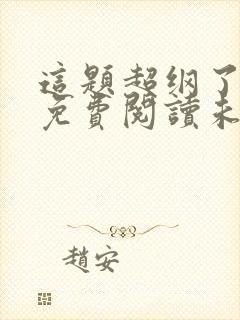 這題超纲了
免費閱讀未
趙安